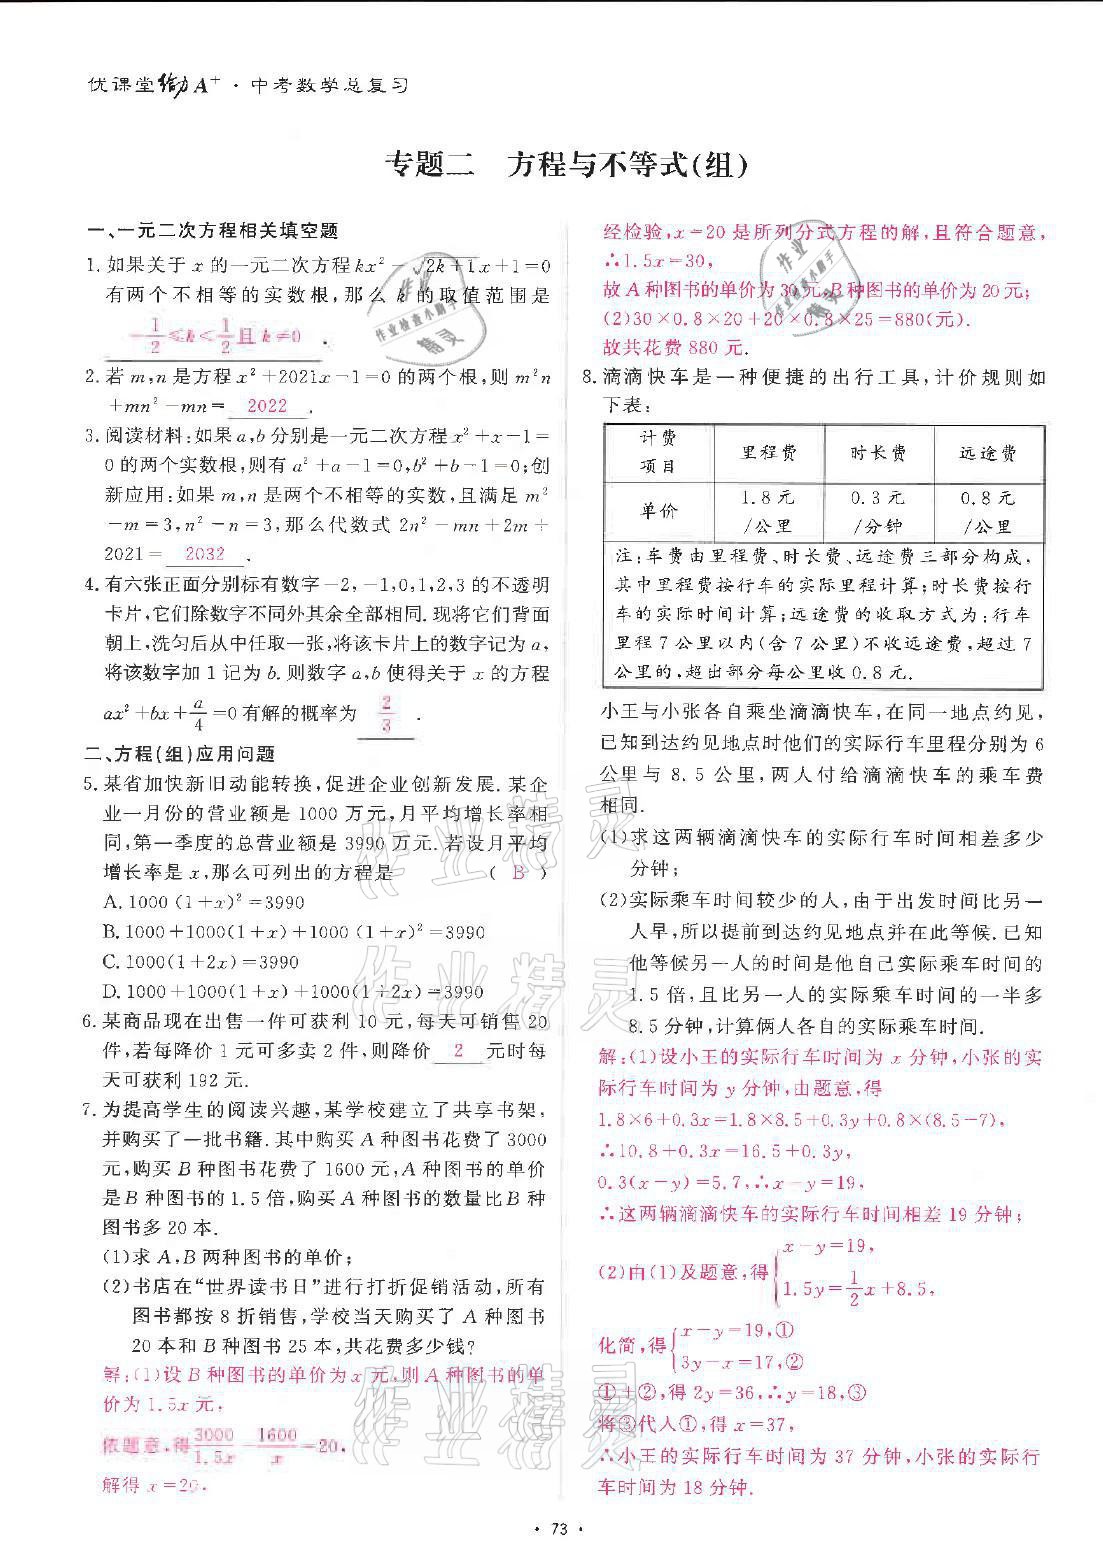 优课堂给力A⁺·中考数学总复习
专题二 方程与不等式(组)
一、一元二次方程相关填空题
1. 如果关于 x 的一元二次方程 kx²－√2k+1x+1=0
有两个不相等的实数根,那么 k 的取值范围是
－1/2≤k<1/2且 k≠0 .
2. 若 m,n 是方程 x²+2021x－1=0 的两个根,则 m²n
+mn²－mn= 2022 .
3. 阅读材料:如果 a,b 分别是一元二次方程 x²+x－1=
0 的两个实数根,则有 a²+a－1=0,b²+b－1=0;创
新应用:如果 m,n 是两个不相等的实数,且满足 m²
－m=3,n²－n=3,那么代数式 2n²－mn+2m+
2021= 2032 .
4. 有六张正面分别标有数字－2,－1,0,1,2,3 的不透明
卡片,它们除数字不同外其余全部相同. 现将它们背面
朝上,洗匀后从中任取一张,将该卡片上的数字记为 a,
将该数字加 1 记为 b. 则数字 a,b 使得关于 x 的方程
ax²+bx+a/4=0 有解的概率为 2/3 .
二、方程(组)应用问题
5. 某省加快新旧动能转换,促进企业创新发展. 某企
业一月份的营业额是 1000 万元,月平均增长率相
同,第一季度的总营业额是 3990 万元. 若设月平均
增长率是 x,那么可列出的方程是 ( B )
A. 1000 (1+x)²=3990
B. 1000+1000(1+x)+1000 (1+x)²=3990
C. 1000(1+2x)=3990
D. 1000+1000(1+x)+1000(1+2x)=3990
6. 某商品现在出售一件可获利 10 元,每天可销售 20
件,若每降价 1 元可多卖 2 件,则降价 2 元时每
天可获利 192 元.
7. 为提高学生的阅读兴趣,某学校建立了共享书架,
并购买了一批书籍. 其中购买 A 种图书花费了 3000
元,购买 B 种图书花费了 1600 元,A 种图书的单价
是 B 种图书的 1.5 倍,购买 A 种图书的数量比 B 种
图书多 20 本.
(1)求 A,B 两种图书的单价;
(2)书店在“世界读书日”进行打折促销活动,所有
图书都按 8 折销售,学校当天购买了 A 种图书
20 本和 B 种图书 25 本,共花费多少钱?
解:(1)设 B 种图书的单价为 x 元,则 A 种图书的单
价为 1.5x 元,
依题意,得3000/1.5x－1600/x=20,
解得 x=20,
经检验,x=20 是所列分式方程的解,且符合题意,
∴1.5x=30,
故 A 种图书的单价为 30 元,B 种图书的单价为 20 元;
(2)30×0.8×20+20×0.8×25=880(元).
故共花费 880 元.
8. 滴滴快车是一种便捷的出行工具,计价规则如
下表:
计费项目 里程费 时长费 远途费
单价 1.8 元/公里 0.3 元/分钟 0.8 元/公里
注:车费由里程费、时长费、远途费三部分构成,
其中里程费按行车的实际里程计算;时长费按行
车的实际时间计算;远途费的收取方式为:行车
里程 7 公里以内(含 7 公里)不收远途费,超过 7
公里的,超出部分每公里收 0.8 元.
小王与小张各自乘坐滴滴快车,在同一地点约见,
已知到达约见地点时他们的实际行车里程分别为 6
公里与 8.5 公里,两人付给滴滴快车的乘车费
相同.
(1)求这两辆滴滴快车的实际行车时间相差多少
分钟;
(2)实际乘车时间较少的人,由于出发时间比另一
人早,所以提前到达约见地点并在此等候. 已知
他等候另一人的时间是他自己实际乘车时间的
1.5 倍,且比另一人的实际乘车时间的一半多
8.5 分钟,计算俩人各自的实际乘车时间.
解:(1)设小王的实际行车时间为 x 分钟,小张的实
际行车时间为 y 分钟,由题意,得
1.8×6+0.3x=1.8×8.5+0.3y+0.8×(8.5－7),
∴10.8+0.3x=16.5+0.3y,
0.3(x－y)=5.7,∴x－y=19,
∴这两辆滴滴快车的实际行车时间相差 19 分钟;
(2)由(1)及题意,得{x－y=19,
1.5y=1/2x+8.5,
化简,得{x－y=19,①
3y－x=17,②
①+②,得 2y=36,∴y=18,③
将③代入①,得 x=37,
∴小王的实际行车时间为 37 分钟,小张的实际行
车时间为 18 分钟.
· 73 ·
作业检查小助手
作业精灵
作业检查小助手
作业精灵
作业精灵
作业精灵
作业精灵